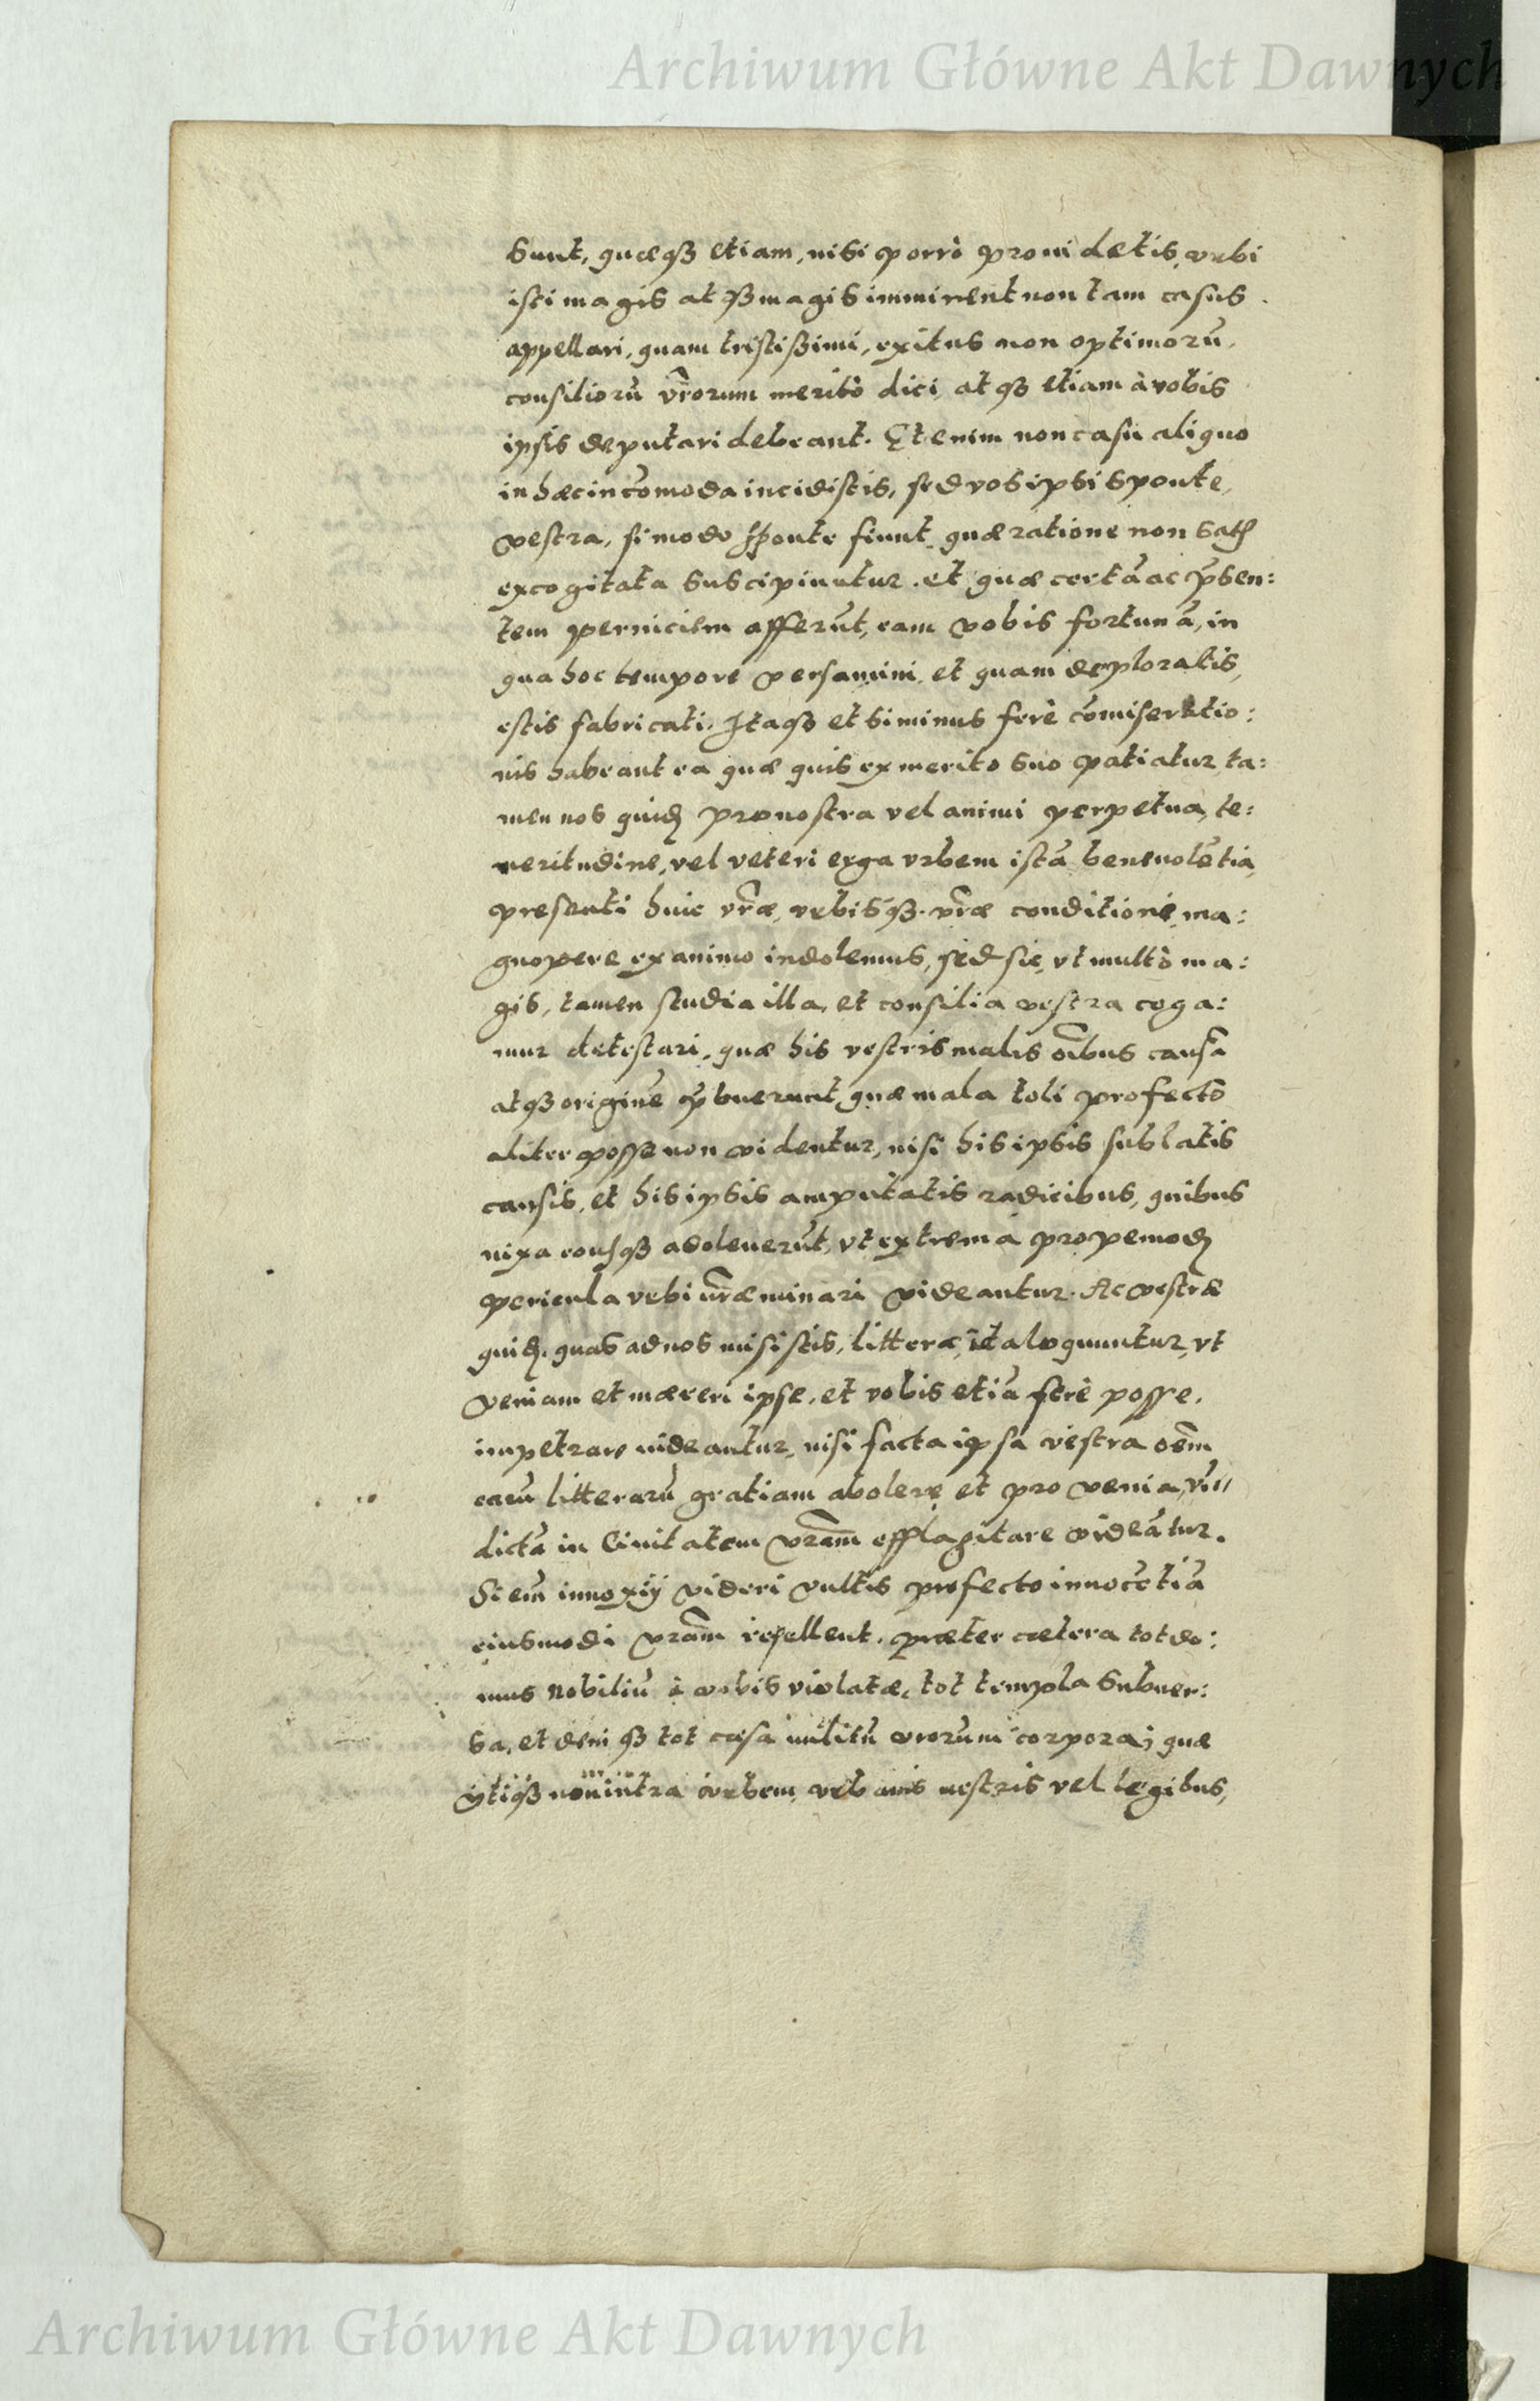 Archiwum Główne Akt Dawnych
sunt, quæq₃ etiam, nisi porrò prouidetis, vrbi
isti magis atq₃ magis imminent non tam casus
appellari, quam tristissimi, exitus non optimorū,
consiliorū vr̄orum meritò dici, atq₃ etiam à vobis
ipsis deputari debeant. Et enim non casu aliquo
in hæc incōmoda incidistis, sed vos ipsi sponte,
vestra, si modo sponte fiunt, quæ ratione non satis
excogitata suscipiuntur. et quæ certā ac p̄sen:
tem perniciem afferūt, eam vobis fortunā, in
qua hoc tempore versamini, et quam deploratis,
estis fabricati. Itaq₃ etsi minus ferè cōmiseratio:
nis habeant ea quæ quis ex merito suo patiatur, ta:
men nos quidē pro nostra vel animi perpetua, te:
neritudine, vel veteri erga vrbem istā beneuolētia,
presenti huic vr̄æ, vrbisq₃ vr̄æ conditione, ma:
gnopere ex animo indolemus, sed sic, vt multò ma:
gis, tamen studia illa, et consilia vestra coga:
mur detestari, quæ his vestris malis oībus causā
atq₃ originē p̄buerunt, quæ mala toli profectò
aliter posse non videntur, nisi his ipsis sublatis
causis, et his ipsis amputatis radicibus, quibus
nixa eousq₃ adoleuerūt, vt extrema propemodū
pericula vrbi vr̄æ minari videantur. Ac vestræ
quidē, quas ad nos misistis, litteræ, ita loquuntur, vt
veniam et mæreri ipse, et vobis etiā ferè posse,
impetrare uideantur, nisi facta ipsa vestra oēm
earū litterarū gratiam abolere et pro venia, vin
dictā in Ciuitatem vr̄am efflagitare videātur.
Si em̄ innoxij videri vultis profecto innocētiā
eiusmodi vr̄am refellent, præter cætera tot do:
mus Nobiliū à vobis violatæ, tot templa subuer:
sa, et deniq₃ tot cæsa militū vrorum corpora; quæ
vtiq₃ non intra vrbem, vrbanis uestris vel legibus,
Archiwum Główne Akt Dawnych